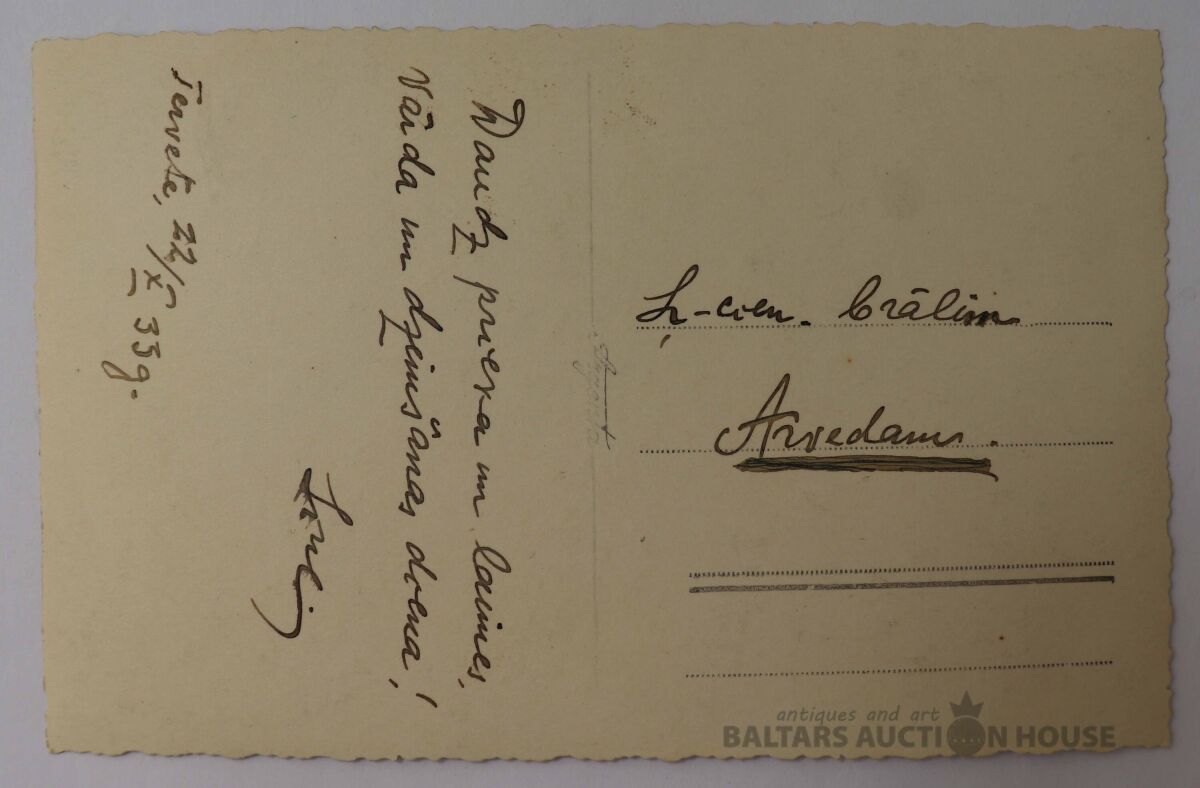 Daudz prieka un laimes,
Vārda un dzimšanas diena!
Tervete, 22/X 35g.
Ļ-cien. brālim
Arvedam.
antiques and art
BALTARS AUCTION HOUSE